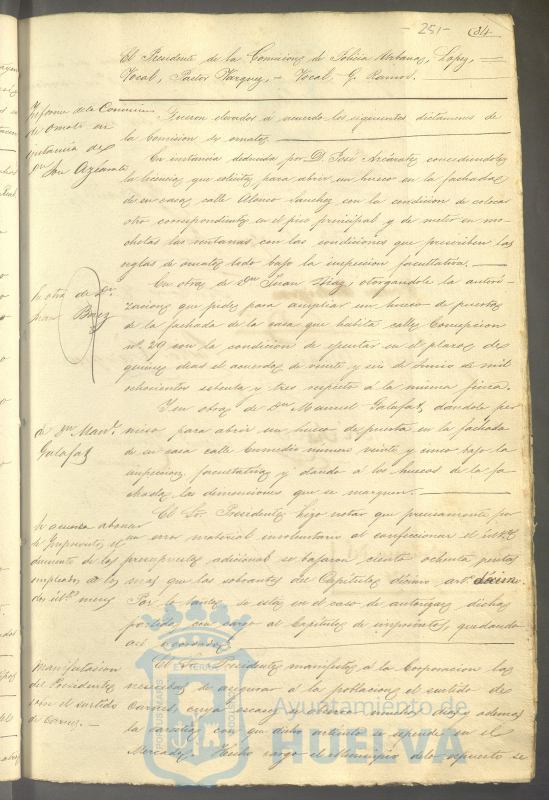 - 251 - 84
El Presidente de la Comision de Policia Urbana, Lopez, =
Vocal, Pastor Vazquez, - Vocal G. Ramos. -
Informe de la Comision
de ornato en
instancia de
Dn José Azcárate
Fueron elevados á acuerdo los siguientes dictamenes de
la Comision de ornato.
En instancia deducida por D. José Azcárate, concediendole
la licencia que solicita, para abrir un hueco en la fachada
de su casa calle Alonso Sanchez con la condicion de colocar
otro correspondiente en el piso principal y de meter en mo-
chetas las ventanas con las condiciones que prescriben las
reglas de ornato todo bajo la inspeccion facultativa. -
Id otra de Dn
Juan Diaz
En otra de Dn Juan Diaz, otorgandole la autori-
zacion que pide para ampliar un hueco de puerta
de la fachada de la casa que habita calle Concepcion
nº 29 con la condicion de ejecutar en el plazo de
quince dias el acuerdo de veinte y seis de Junio de mil
ochocientos setenta y tres respecto á la misma finca.
Id Dn Manl
Galafat
Y en otra de Dn Manuel Galafat, dandole per
miso para abrir un hueco de puerta en la fachada
de su casa calle Enmedio numero veinte y cinco bajo la
inspeccion facultativa y dando a los huecos de la fa
chada las dimensiones que se marquen. -
Se acuerda abonar
de Imprevistos el
aumento de los
empleados
El Sr. Presidente hizo notar que precisamente por
un error material involuntario al confeccionar el
presupuesto adicional se bajaron ciento ochenta pesetas
mas que las sobrantes del Capitulo decimo artº
Por lo tanto se está en el caso de autorizar dicha
partida con cargo al Capitulo de imprevistos, quedando
asi acordado.
Manifestacion
del Presidente
sobre el surtido
de Carnes. -
El Sr. Presidente manifestó á la Corporacion la
necesidad de asegurar á la poblacion el surtido de
Carnes, cuya escasez se observa muchos dias ademas
la carestia con que dicho articulo se expende en el
Mercado. Hecho cargo el Municipio de lo expuesto se
Ayuntamiento de
HUELVA